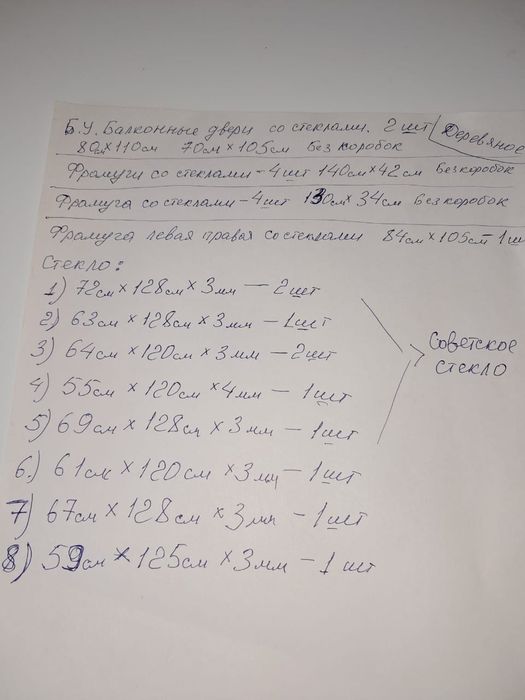 Б.У. Балконные двери со стеклами. 2 шт Деревяное
80см×110см 70см×105см Без коробок
Фрамуги со стеклами - 4 шт 140см×42см Без коробок
Фрамуга со стеклами - 4шт 130см×34см Без коробок
Фрамуга левая правая со стеклами 84см×105см - 1 ш
Стекло:
1) 72см × 128см × 3мм — 2шт
2) 63см × 128см × 3мм — 1шт
3) 64см × 120см × 3мм — 2шт
Советское
стекло
4) 55см × 120см × 4мм — 1шт
5) 69см × 128см × 3мм — 1шт
6.) 61см × 120см × 3мм — 1шт
7) 67см × 128см × 3мм — 1шт
8) 59см × 125см × 3мм — 1 шт